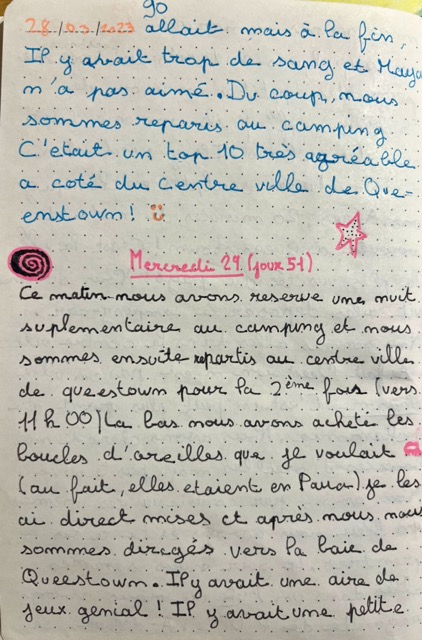 90
28/03/2023 allait mais à la fin,
Il y avait trop de sang et Maya
n'a pas aimé. Du coup, nous
sommes reparis au camping
C'était un top 10 très agréable
a coté du centre ville de Que-
enstown!
Mercredi 29. (jour 51)
Ce matin nous avons reserve une nuit
suplementaire au camping et nous
sommes ensuite repartis au centre ville
de queestown pour la 2ème fois (vers
11h00) La bas nous avons acheté les
boucles d'oreilles que je voulait
(au fait, elles etaient en Paua) je les
ai direct mises et après nous nous
sommes dirigés vers la baie de
Queestown. Il y avait une aire de
jeux genial! Il y avait une petite